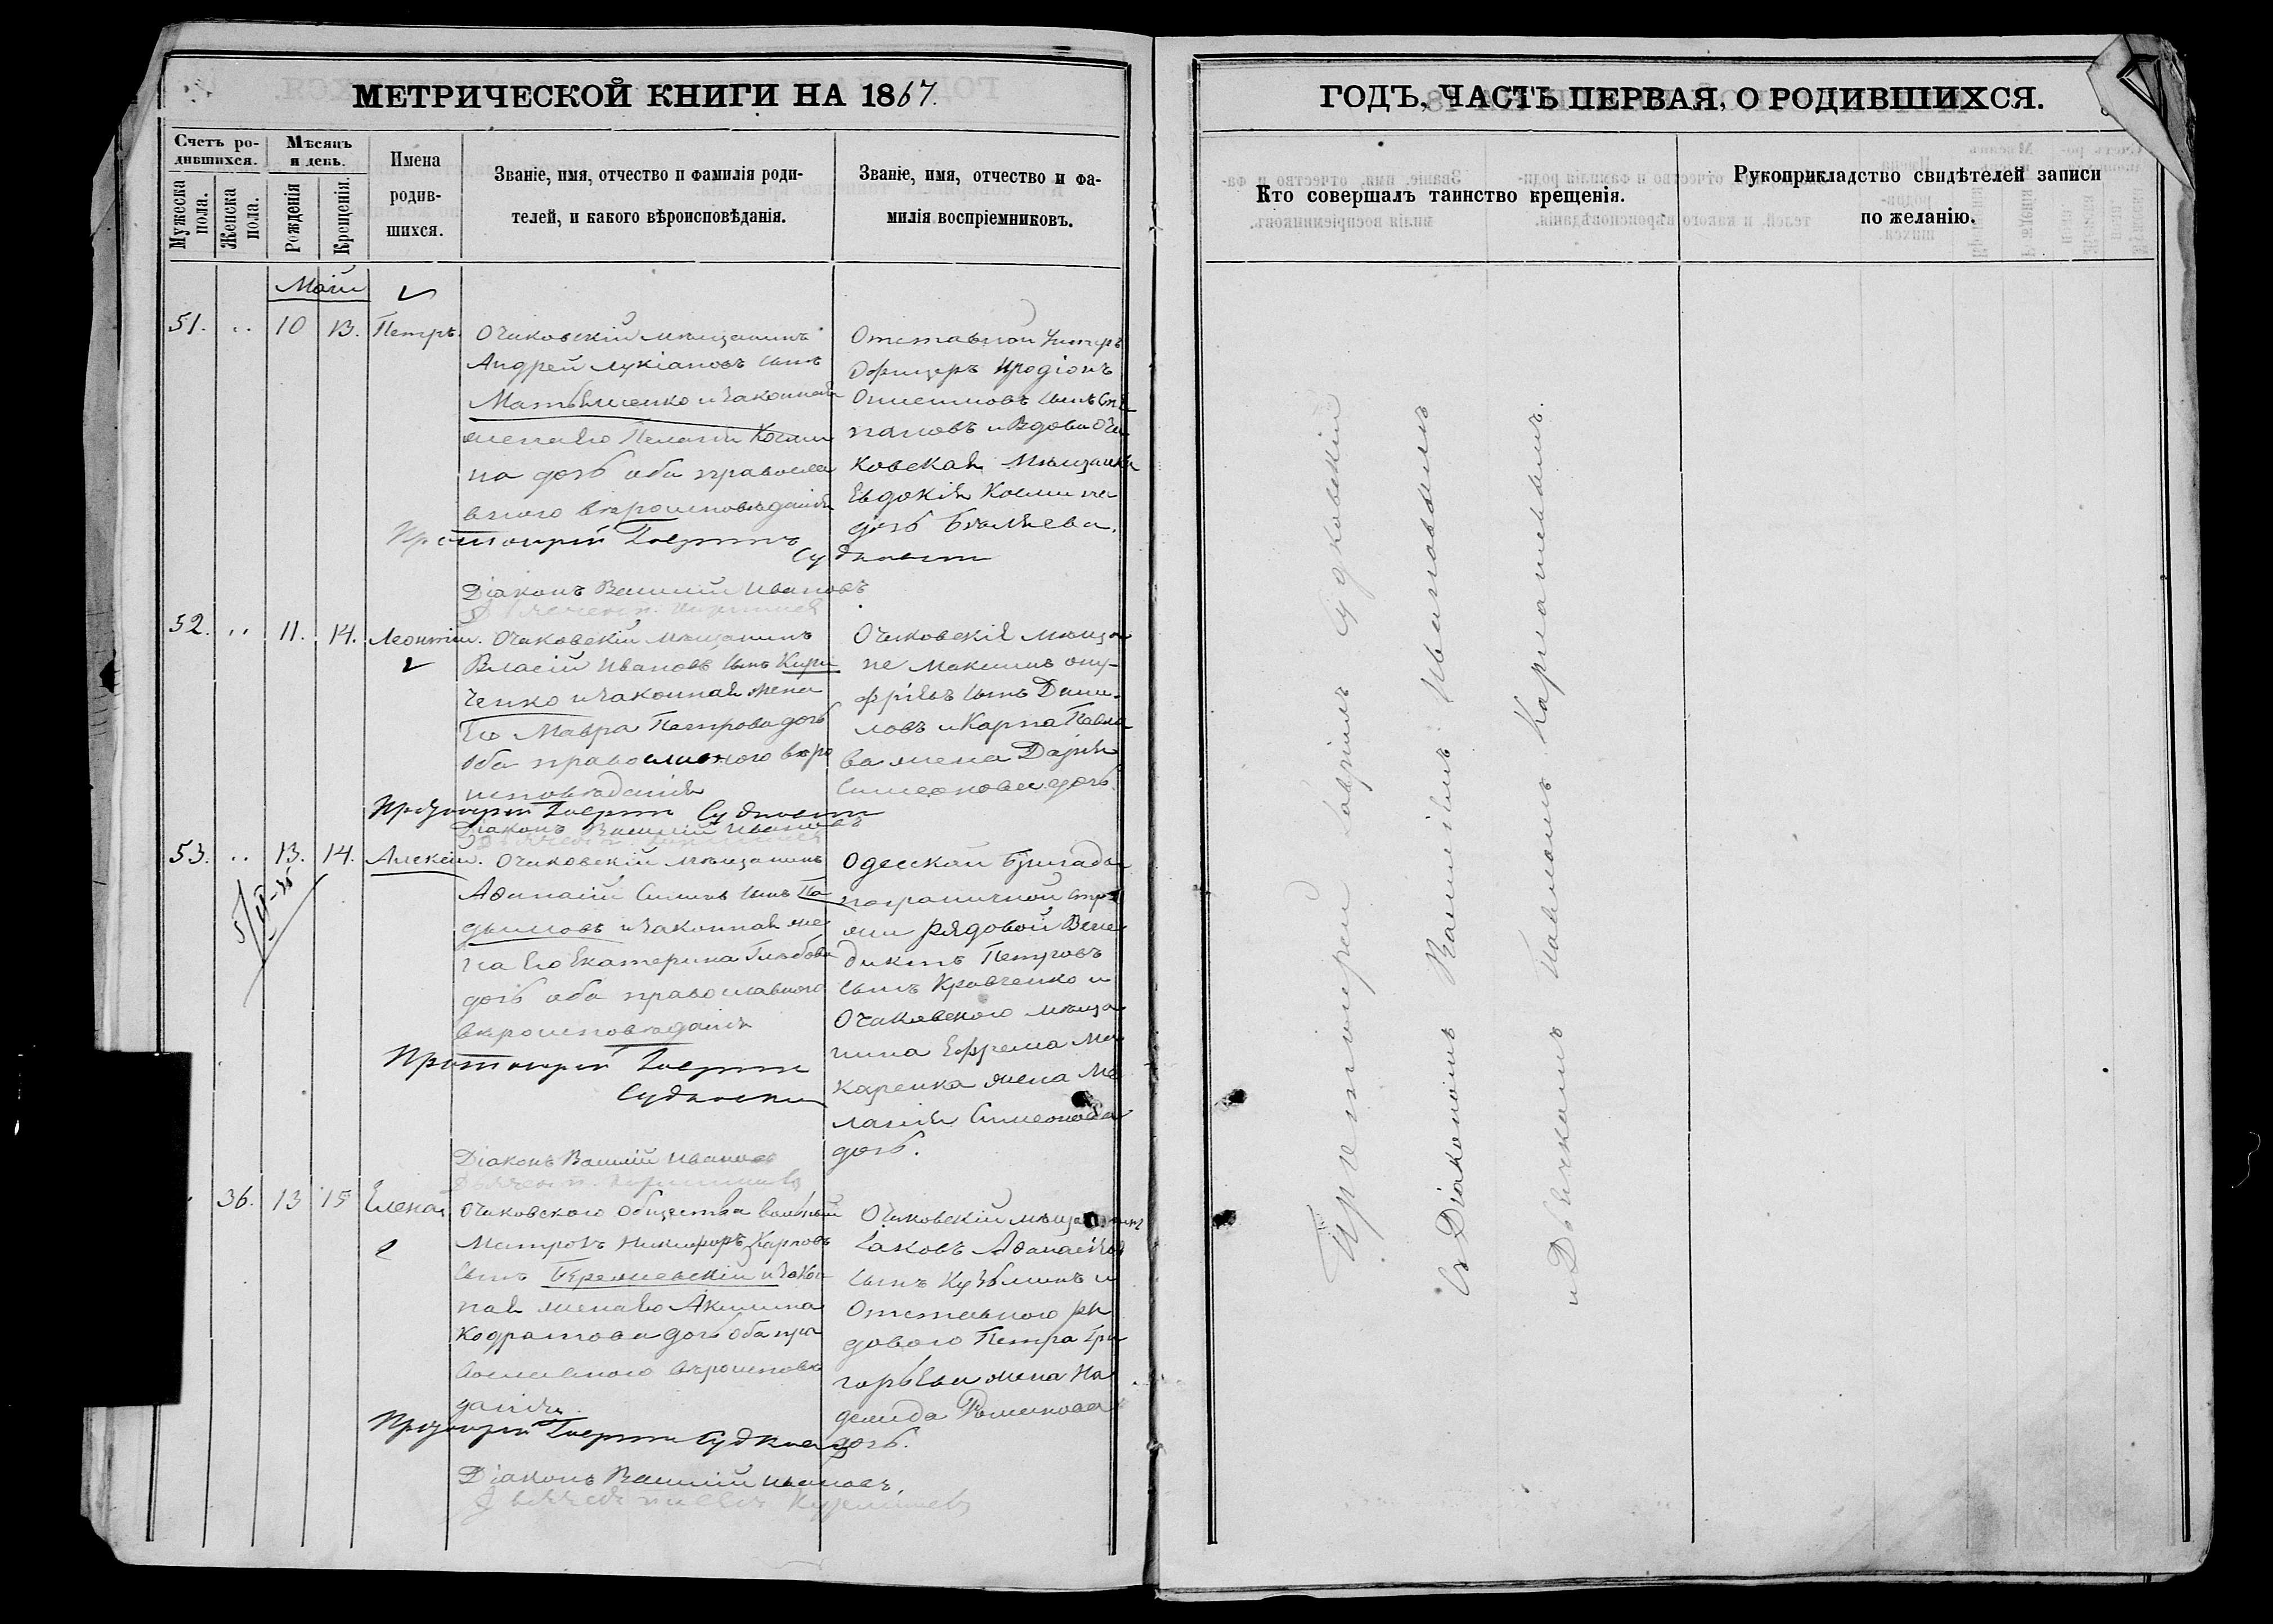 МЕТРИЧЕСКОЙ КНИГИ НА 1867.
Счетъ ро-
дившихся.
Мѣсяцъ
и день.
Имена
родив-
шихся.
Званіе, имя, отчество и фамилія роди-
телей, и какого вѣроисповѣданія.
Званіе, имя, отчество и фа-
милія воспріемниковъ.
Мужеска
пола.
Женска
пола.
Рожденія
Крещенія.
Маій
51. 10 13. Петръ.
Очаковскій мѣщанинъ
Андрей Лукіановъ сынъ
и законная
жена его Пелагія Косми
на дочь оба правосла
внаго вѣроисповѣданія
Отставной Унтеръ
Офицеръ Иродіонъ
сынъ Сте
пановъ и Вдова Оча
ковская Мѣщанка
Евдокія Космина
дочь Бѣляева.
Протоіерей Гавріилъ
Судковскій
Діаконъ Василій Ивановъ
52. 11. 14. Леонтій.
Очаковскій мѣщанинъ
Власій Ивановъ сынъ Кири
ченко и законная жена
Его Мавра Петрова дочь
оба православного вѣро
исповѣданія
Очаковскія мѣща
не Максимъ Ону-
фріевъ сынъ Дани-
ловъ и Карпа Павло
ва жена Дарія
Симеонова дочь.
Протоіерей Гавріилъ Судковскій
Діаконъ Василій Ивановъ
53. 13. 14. Алексій.
Очаковскій мѣщанинъ
Афанасій Силинъ сынъ По
дымовъ и законная же
на его Екатерина Глѣбова
дочь оба православного
вѣроисповѣданія
Одесской Бригады
пограничной стра
жи рядовой Вене
диктъ Петровъ
сынъ Кравченко и
Очаковского мѣща
нина Ефрема Ма
каренка жена Ме
ланія Симеонова
дочь.
Протоіерей Гавріилъ
Судковскій
Діаконъ Василій Ивановъ
36. 13 15 Елена
Очаковского Общества вольный
Матросъ Никифоръ Карповъ
сынъ Бережевскій и закон
ная жена его Акилина
Кодратова дочь оба пра
вославного вѣроисповѣ
данія.
Очаковскій мѣщанинъ
Іаковъ Афанасіевъ
сынъ Кузьминъ и
Отставного ря
дового Петра Гри
горьева жена На
дежда Романова
дочь.
Протоіерей Гавріилъ Судковскій
Діаконъ Василій Ивановъ.
ГОДЪ, ЧАСТЬ ПЕРВАЯ, О РОДИВШИХСЯ.
Кто совершалъ таинство крещенія.
Рукоприкладство свидѣтелей записи
по желанію.
Протоіерей Гавріилъ Судковскій
съ Діакономъ Василіемъ Ивановымъ
и Дьячкомъ Павломъ